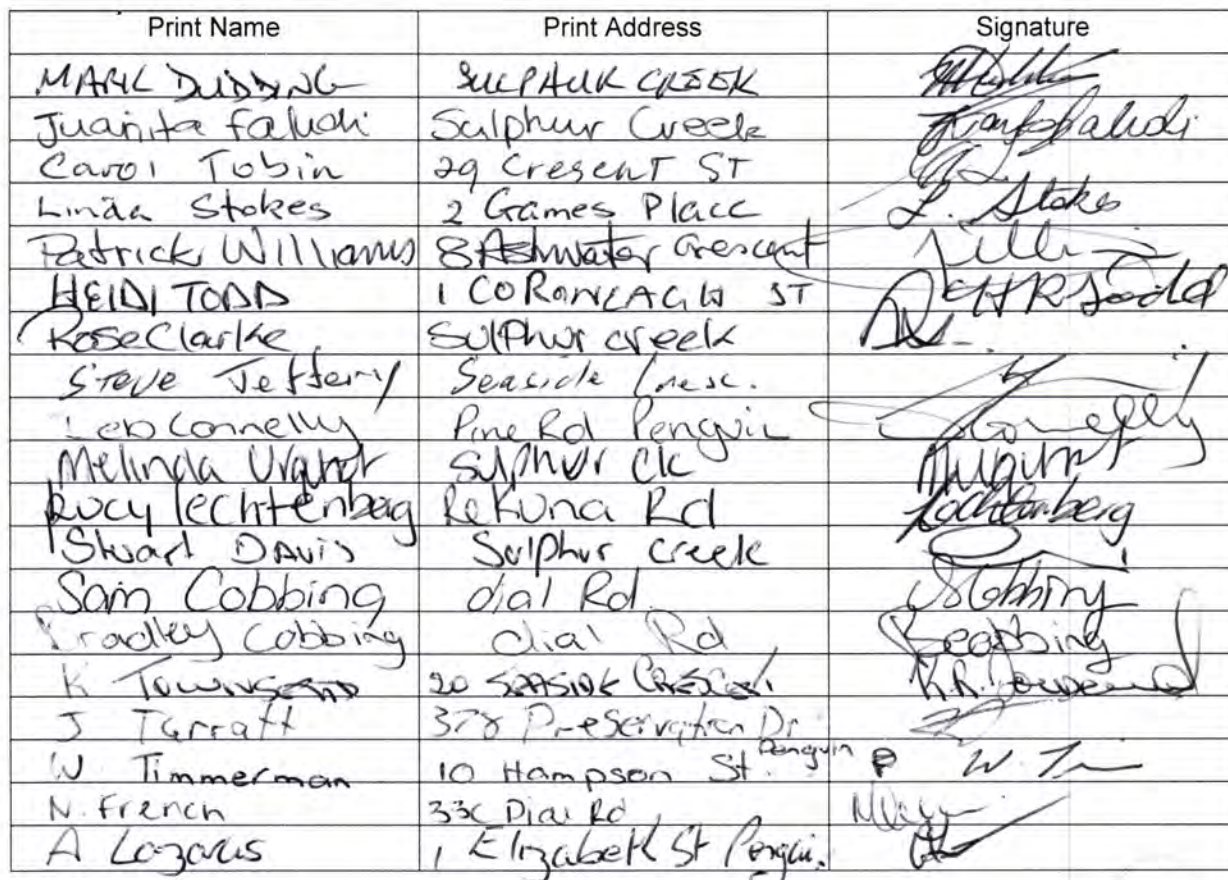 Print Name Print Address Signature
MARK DUDDING SULPHUR CREEK
Juanita Faludi Sulphur Creek
Carol Tobin 29 Cresent ST
Linda Stokes 2 Games Place L. Stokes
Patrick Williams 8 Ashwater Crescent
HEIDI TODD 1 CORONEAGH ST HR Todd
Rose Clarke Sulphur creek
Steve Jeffery Seaside Cresc.
Connelly Pine Rd Penguin Connelly
Melinda Urquhart Sulphur Ck
Lucy lechtenberg Rekuna Rd Lechtenberg
Stuart DAVIS Sulphur Creek
Sam Cobbing dial Rd. SCobbing
Bradley Cobbing dial Rd BCobbing
K TOWNSEND 20 SEASIDE CRESCENT K.R. Townsend
J Tarratt 378 Preservation Dr
W. Timmerman 10 Hampson St. Penguin P W. Ti
N. French 33c Dial Rd
A Lazarus 1 Elizabeth St Penguin.